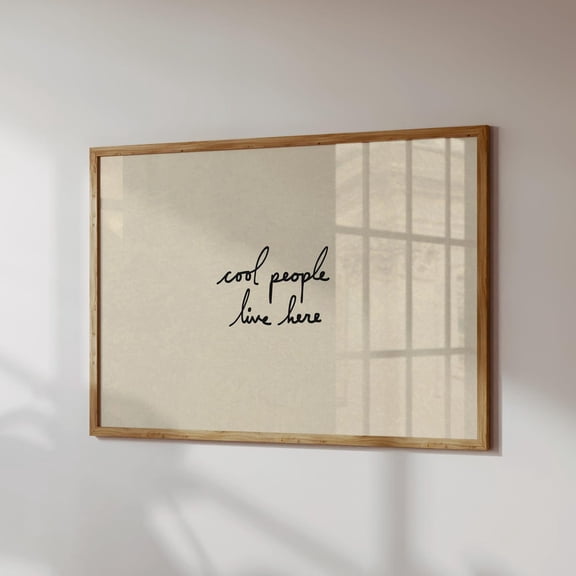 cool people
live here